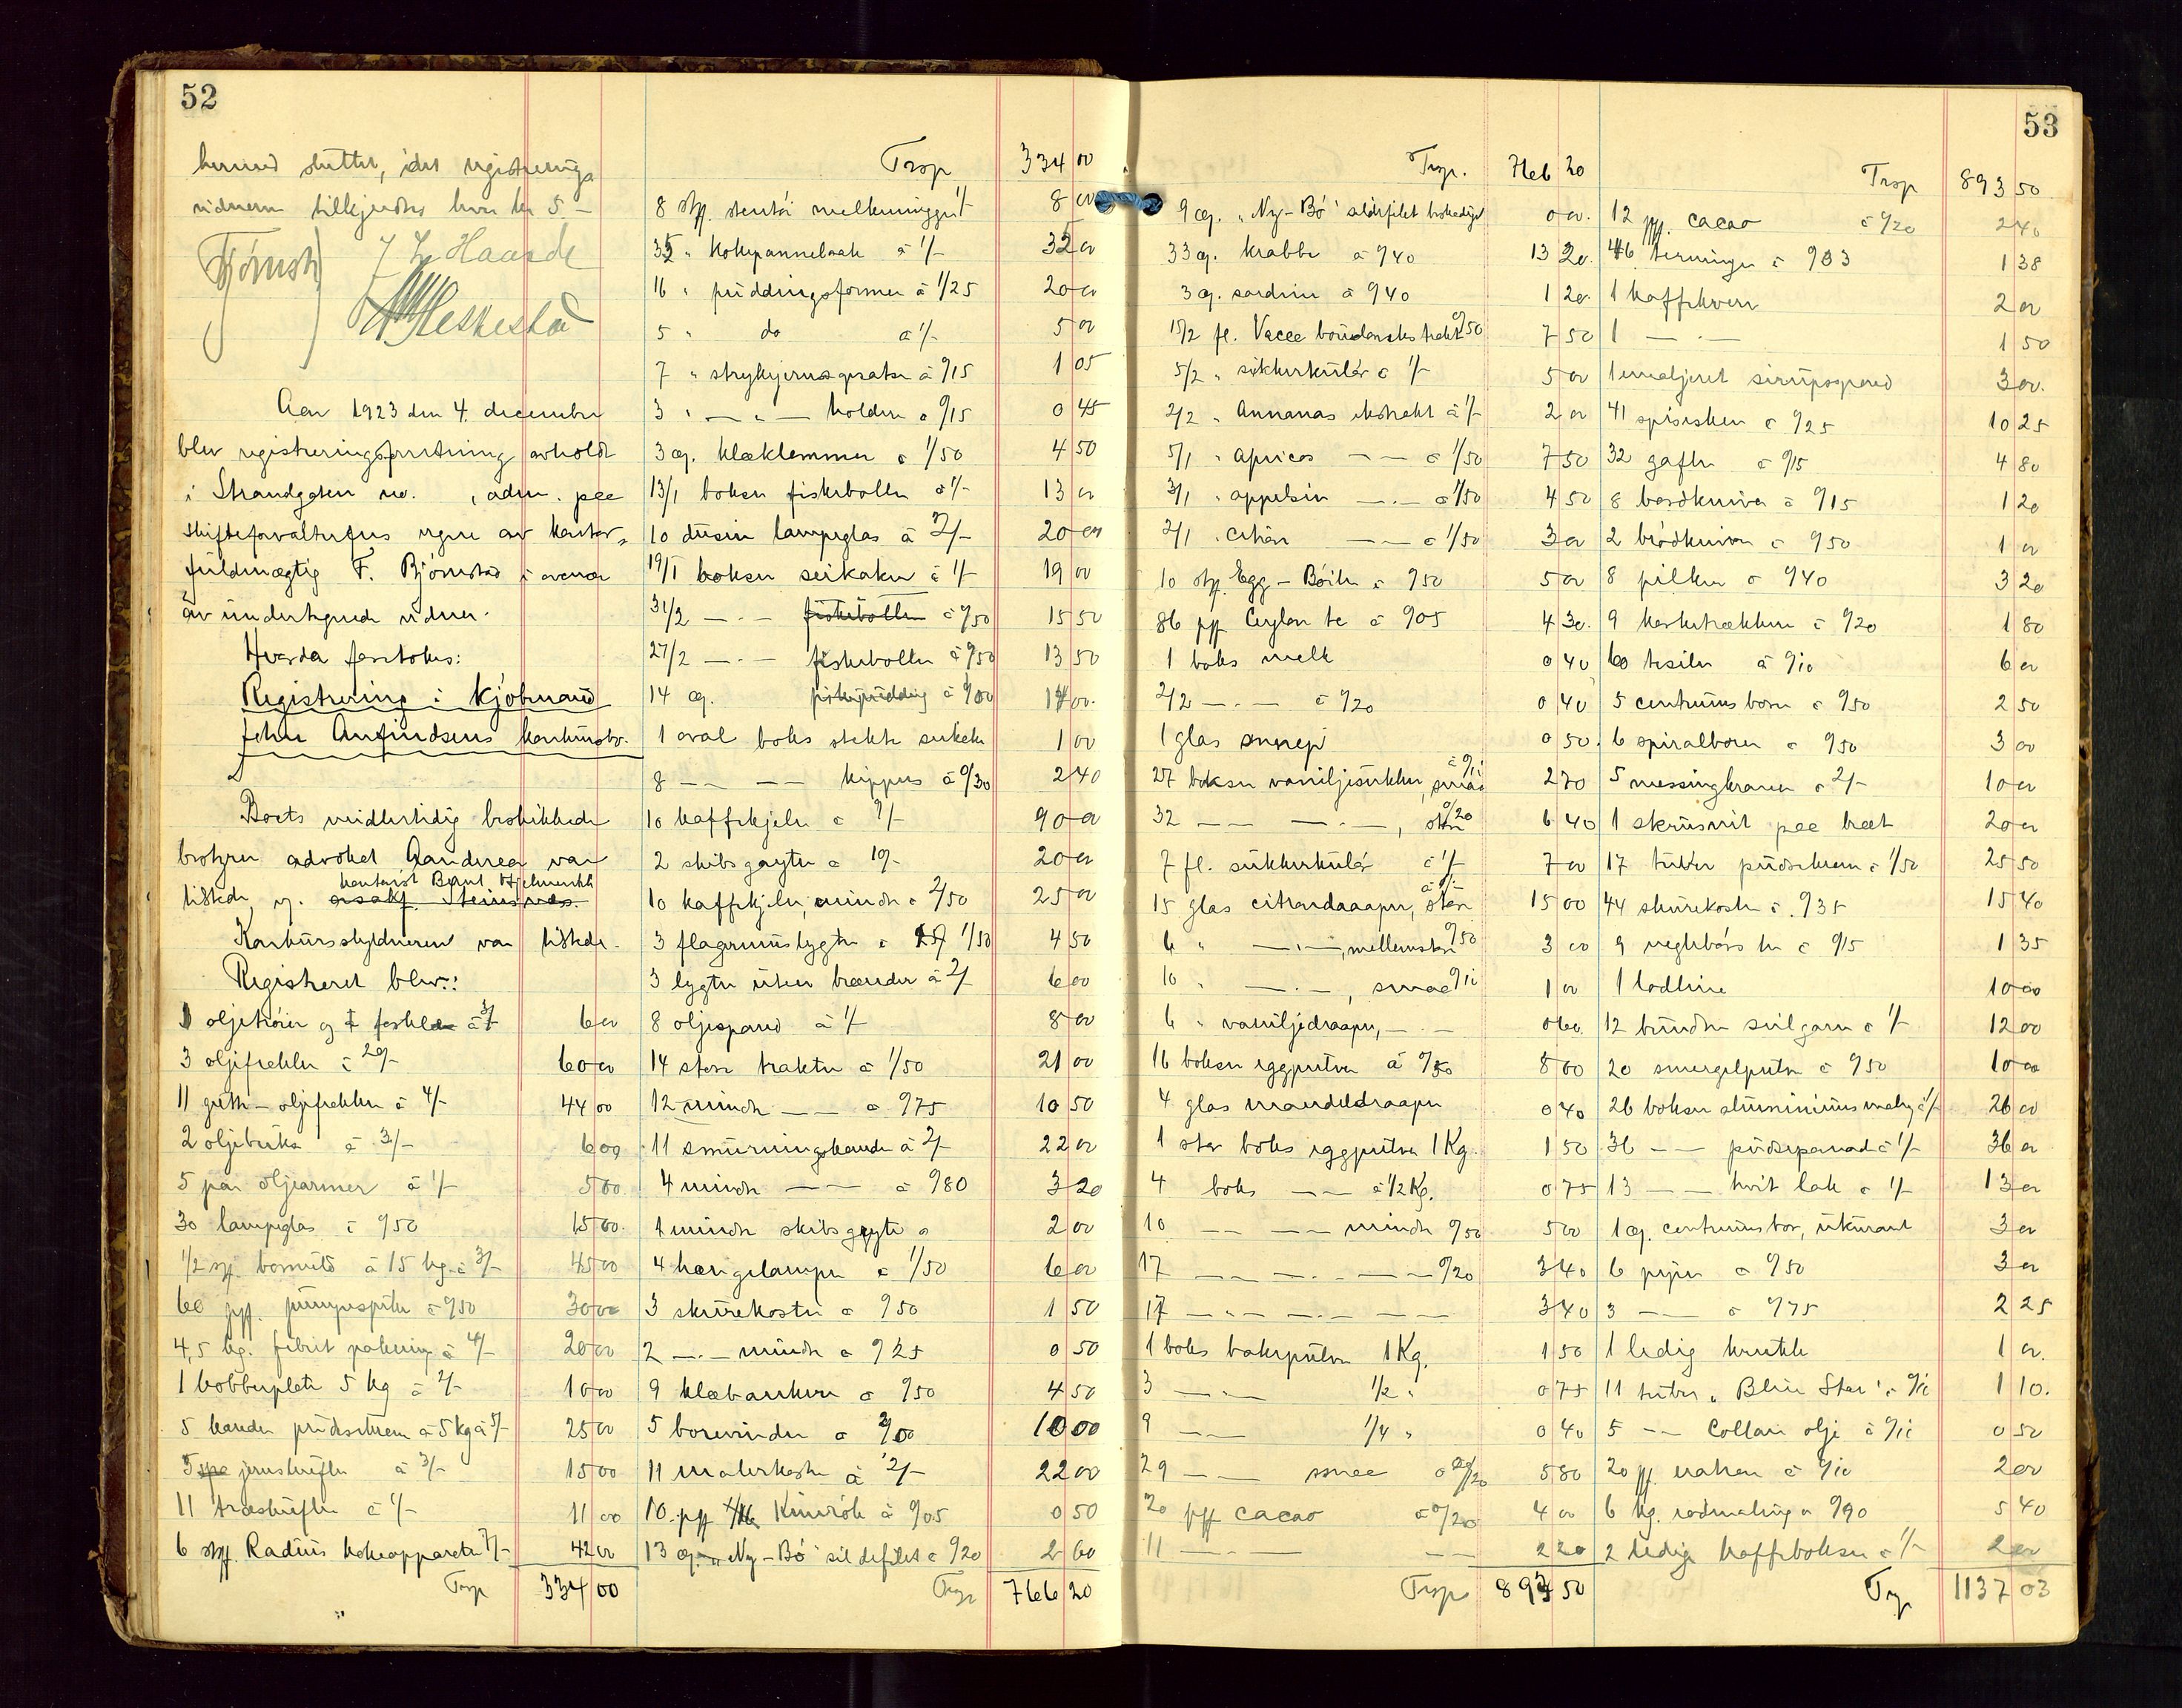 52
hermed sluttet, idet registrerings
vidnerne tilkjendtes hver kr 5 –
Aar 1923 den 4. december
blev registreringsforretning avholdt
i Strandgaten no. , adm. paa
skifteforvalterens vegne av kontor-
fuldmægtig F. Bjørnstad i overvær
av undertegnede vidner.
Hvorda foretokes:
Registrering i kjøbmand
John Anfindsens konkursbo.
Boets midlertidig beskikkede
bestyrer advokat Aanderaa var
kontorist Bernt Hjelmervik
tilstede v.
Konkursskyldneren var tilstede.
Registreret blev:
oljetrøier og 1 à 3/- 6 00
3 oljefrakker à 20/- 60 00
11 gutte-oljefrakker à 4/- 44 00
2 oljebukser à 3/- 6 00
5 par oljeermer à 1/- 5 00
30 lampeglas à 0/50 15 00
1/2 à 15 kg. à 3/- 45 00
60 0/50 30 00
4,5 kg. fibrit pakning à 4/- 20 00
1 kobberplate 5 kg à 2/- 10 00
5 kander pudsekrem à 5 kg à 5/- 25 00
5 jernskufler à 3/- 15 00
11 træskufler à 1/- 11 00
6 stk. Radius kokeapparater 7/- 42 00
Trsp 334 00
Trsp 334 00
8 stk. stentøi melkemugger 1/- 8 00
32 " kokepannelaak à 1/- 32 00
16 " puddingsformer à 1/25 20 00
5 " do à 1/- 5 00
7 " strykejernsapparater à 0/15 1 05
3 " – " – holdere à 0/15 0 45
3 es. klæklemmer à 1/50 4 50
13/1 bokser fiskeboller à 1/- 13 00
10 dusin lampeglas à 2/- 20 00
19/1 bokser seikaker à 1/- 19 00
31/2 – " – fiskeboller à 0/50 15 50
27/2 – " – fiskeboller à 0/50 13 50
14 es. fiskepudding 14 00
1 oval boks stekte seikaker 1 00
8 – – – – kippers à 0/30 2 40
10 kaffekjeler à 9/- 90 00
2 skibs à 10/- 20 00
10 kaffekjeler, mindre à 2/50 25 00
3 flaggermuslygter à 1/50 4 50
3 lygter uten brænder à 2/- 6 00
8 oljespand à 1/- 8 00
14 store trakter à 1/50 21 00
12 mindre – – à 0/75 10 50
11 smurningskander à 2/- 22 00
4 mindre – – à 0/80 3 20
1 mindre skibs 2 00
4 hængelamper à 1/50 6 00
3 skurekoster à 0/50 1 50
2 – " – mindre à 0/25 0 50
9 à 0/50 4 50
5 borevinder à 2/00 10 00
11 malerkoster à 2/- 22 00
10 pk Kinrøk à 0/05 0 50
13 es. "Ny-Bø" sildefilet à 0/20 2 60
Trsp 766 20
53
Trsp. 766 20
9 es. "Ny-Bø" sildefilet 0 00
33 es. krabbe à 0/40 13 20
3 es. sardiner à 0/40 1 20
15/2 fl. 0/50 7 50
5/2 " sukkerkulør à 1/- 5 00
2/2 " Annanas ekstrakt à 1/- 2 00
5/1 " apricos – – à 1/50 7 50
3/1 " appelsin – " – à 1/50 4 50
2/1 " citron – – à 1/50 3 00
10 stk. Egg-Boiler à 0/50 5 00
86 pk Ceylon te à 0/05 4 30
1 boks melk 0 40
2/2 – " – à 0/20 0 40
1 glas sennep 0 50
27 bokser vaniljesukker, smaa à 0/10 2 70
32 – – – " –, store 0/20 6 40
7 fl. sukkerkulør à 1/- 7 00
15 glas citrondraaper, store à 1/- 15 00
6 " – " –, mellemstore 0/50 3 00
10 " – " –, smaa 0/10 1 00
6 " vaniljedraaper, – " – 0 60
16 bokser eggpulver à 0/50 8 00
4 glas mandeldraaper 0 40
1 stor boks eggpulver 1 Kg. 1 50
4 boks – – à 1/2 Kg. 0 75
10 – – – – mindre 0/50 5 00
17 – – – " – – – 0/20 3 40
17 – " – – " – – – 3 40
1 boks bakepulver 1 Kg. 1 50
3 – " – 1/2 " 0 75
9 – – 1/4 " 0 40
29 – – smaa à 0/20 5 80
20 pk cacao à 0/20 4 00
11 – " – – – 2 20
Trsp 893 50
Trsp 893 50
12 pk. cacao à 0/20 2 40
46 terninger à 0/03 1 38
1 kaffekvern 2 00
1 – " – 1 50
1 emaljeret sirupsspand 3 00
41 spiseskeer à 0/25 10 25
32 gafler à 0/15 4 80
8 bordkniver à 0/15 1 20
2 brødkniver à 0/50 1 00
8 pilker à 0/40 3 20
9 korketrækkere à 0/20 1 80
60 tesiler à 0/10 6 00
5 centrumsbor à 0/50 2 50
6 spiralborer à 0/50 3 00
5 messingkraner à 2/- 10 00
1 skruestik paa bræt 20 00
17 tuber pudsekrem à 1/50 25 50
44 skurekoster à 0/35 15 40
9 neglebørster à 0/15 1 35
1 lodline 10 00
12 bundter seilgarn à 1/- 12 00
20 smergelpulver à 0/50 10 00
26 bokser aluminiumsmaling à 1/- 26 00
36 – – pudsepomade à 1/- 36 00
13 – – hvit lak à 1/- 13 00
1 es. centrumsbor, ukurant 3 00
6 piper à 0/50 3 00
3 – – à 0/75 2 25
1 ledig krukke 1 00
11 tuber "Blue Star" à 0/10 1 10
5 – – Collan olje à 0/10 0 50
20 pk à 0/10 2 00
6 kg. rødmaling à 0/90 5 40
2 ledige kaffebokser à 1/- 2 00
Trsp 1137 03